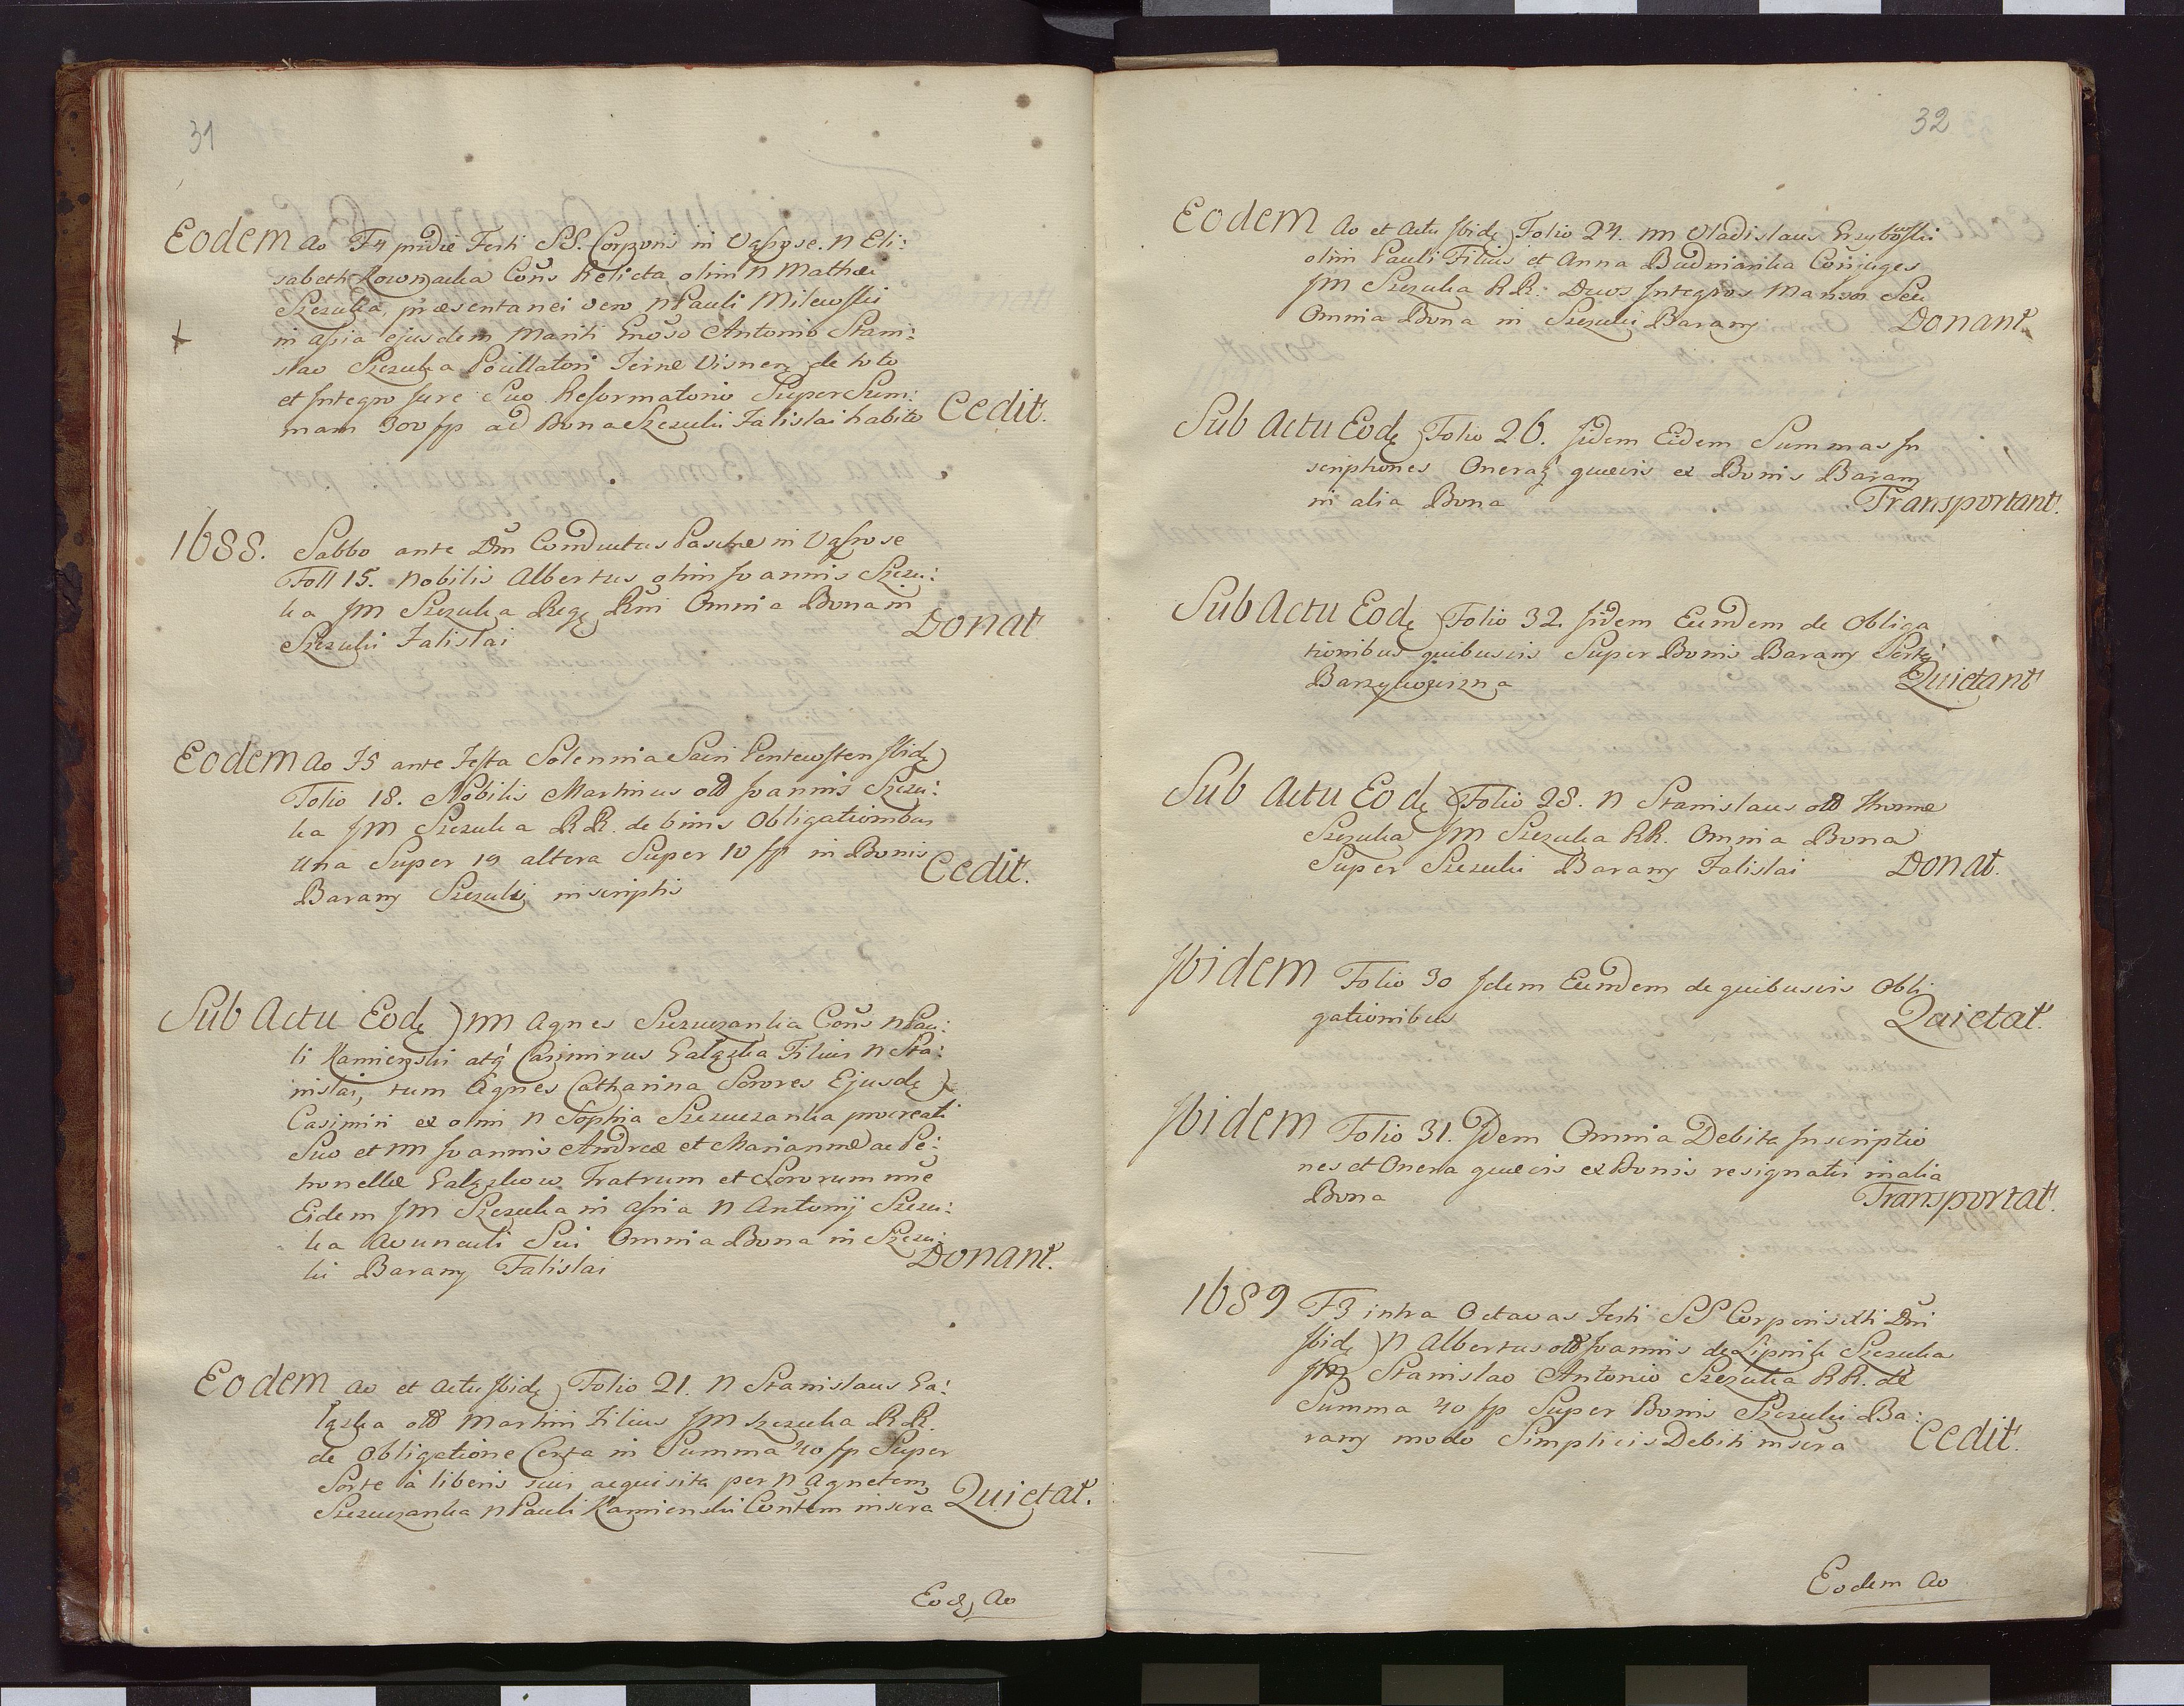 31
Eodem Ao F4 pridie Festi SS. Corporis in Vąsose. N Eli:
sabeth Kownacka Cons Relicta olim N Mathæi
Szczuka, præsentanei vero N Pauli Milewski
in assia ejusdem Mariti Gnoso Antonio Stani:
slao Szczuka Pocillatori Terræ Visnen de toto
et Integro Jure Suo Reformatorio Super Sum:
mam 300 fp ad Bona Szczuki Falislai habito Cedit.
1688. Sabbo ante Dm Conductus Paschæ in Vąsose
Foll 15. Nobilis Albertus olim Joannis Szczu:
ka JM Szczuka Regę Rni Omnia Bona in
Szczuki Falislai Donat
Eodem Ao F5 ante Festa Solennia Sacri Pentecosten Ibidę
Folio 18. Nobilis Martinus olđ Joannis Szczu:
ka JM Szczuka R R. de binis Obligationibus
Una Super 19 altera Super 10 fp in Bonis
Barany Szczuki inscriptis Cedit.
Sub Actu Eodę NN Agnes Szczuczanka Cons N Pau:
li Kamięnski atq Casimirus Gałązka Filius N Sta:
nislai, tum Agnes Catharina Sorores Ejusdę
Casimiri ex olim N Sophia Szczuczanka procreati
Suo et NN Joannis Andreæ et Mariannæ ac Pe:
tronellæ Gałązkow Fratrum et Sororum nne
Eidem JM Szczuka in assia N Antonij Szczu:
ka Avunculi Sui Omnia Bona in Szczu:
ki Barany Falislai Donant.
Eodem Ao et Actu Ibidę Folio 21. N Stanislaus Ga:
łązka olđ Martini Filius JM Szczuka R R.
de Obligatione Certa in Summa 40 fp Super
Sorte à liberis suis acquisita per N Agnetem
Szczuczanka N Pauli Kamienski Contem inscra Quietat.
Eodę Ao
32
Eodem Ao et Actu Ibidę Folio 24. NN Vladislaus Grzybowski
olim Pauli Filius et Anna Budnianka Conjuges
JM Szczuka R R. Duos Integros Mansos Seu
Omnia Bona in Szczuki Barany Donant
Sub Actu Eodę Folio 26. Iidem Eidem Summas In
scriptiones Oneraq quævis ex Bonis Barany
in alia Bona Transportant.
Sub Actu Eodę Folio 32. Iidem Eundem de Obliga
tionibus quibusvis Super Bonis Barany Sorte
Quietant
Sub Actu Eodę Folio 28. N Stanislaus olđ Thomæ
Szczuka JM Szczuka RR. Omnia Bona
Super Szczuki Barany Falislai Donat.
Ibidem Folio 30 Idem Eundem de quibusvis Obli
gationibus Quietat.
Ibidem Folio 31. Idem Omnia Debita Inscriptio
nes et Onera quævis ex Bonis resignatis in alia
Bona Transportat.
1689 F3 intra Octavas Festi SS Corporis Xti Dni
Ibidę N Albertus olđ Joannis de Lipnik Szczuka
JM Stanislao Antonio Szczuka RR. de
Summa 40 fp Super Bonis Szczuki Ba:
rany modo Simplicis Debiti inscra Cedit.
Eodem Ao